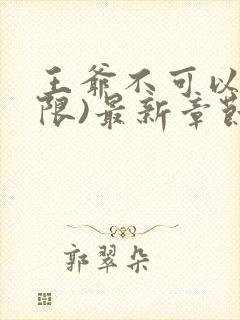 王爷不可以
限)最新章节
郭翠朵